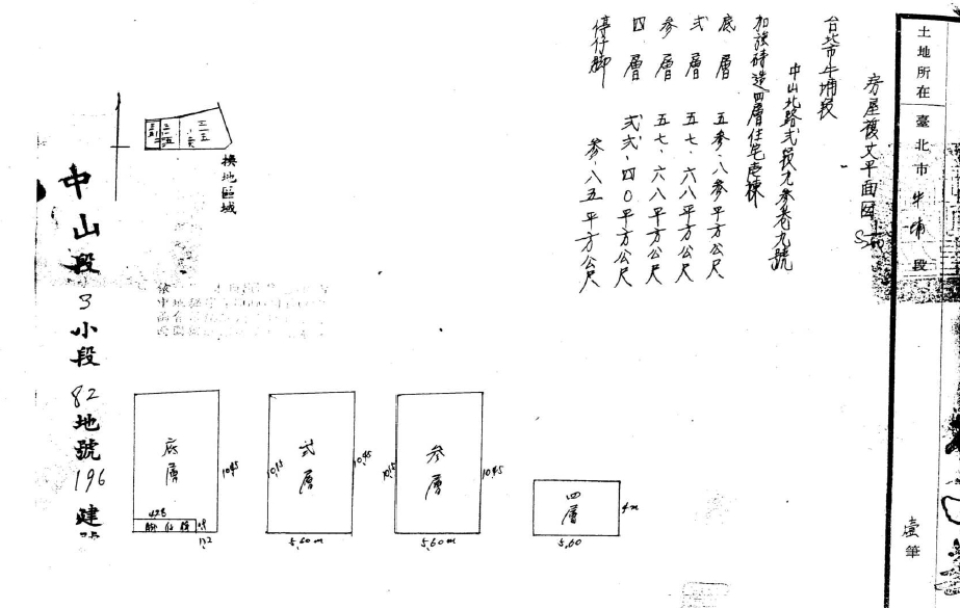 土地所在
臺北市 牛埔 段
壹筆
房屋複丈平面図
台北市牛埔段
中山北路弍段九参巷九號
加強磚造四層住宅壱棟
底層 五参.八参平方公尺
弍層 五七.六八平方公尺
参層 五七.六八平方公尺
四層 弍弍.四〇平方公尺
停仔脚 参.八五平方公尺
換地區域
中山段3小段82地號196建號
底層
10.45
停仔脚
1.12
弍層
10.15
10.45
5.60m
参層
10.15
10.45
5.60m
四層
4m
5.60